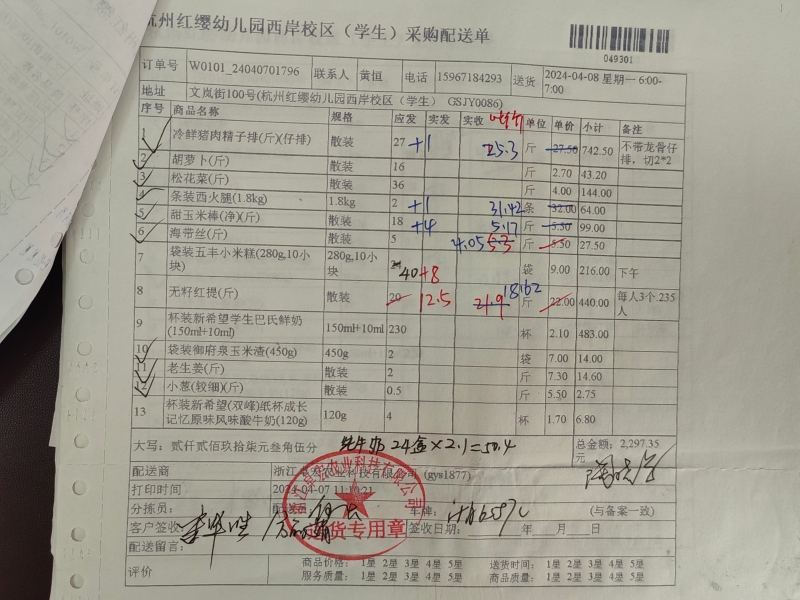 杭州红缨幼儿园西岸校区（学生）采购配送单
049301
订单号 W0101_24040701796 联系人 黄恒 电话 15967184293 送货 2024-04-08 星期一 6:00-7:00
地址 文岚街100号(杭州红缨幼儿园西岸校区（学生） GSJY0086)
序号 商品名称 规格 应发 实发 实收 单位 单价 小计 备注
1 冷鲜猪肉精子排(斤)(仔排) 散装 27 +1 25.3 斤 27.50 742.50 不带龙骨仔排，切2*2
2 胡萝卜(斤) 散装 16 斤 2.70 43.20
3 松花菜(斤) 散装 36 斤 4.00 144.00
4 条装西火腿(1.8kg) 1.8kg 2 +1 31.42 条 32.00 64.00
5 甜玉米棒(净)(斤) 散装 18 +4 5.17 斤 5.50 99.00
6 海带丝(斤) 散装 5 4.05 5.3 斤 5.50 27.50
7 袋装五丰小米糕(280g,10小块) 280g,10小块 40 +8 袋 9.00 216.00 下午
8 无籽红提(斤) 散装 20 12.5 21.9 18.62 斤 22.00 440.00 每人3个.235人
9 杯装新希望学生巴氏鲜奶(150ml+10ml) 150ml+10ml 230 杯 2.10 483.00
10 袋装御府泉玉米渣(450g) 450g 2 袋 7.00 14.00
11 老生姜(斤) 散装 2 斤 7.30 14.60
12 小葱(较细)(斤) 散装 0.5 斤 5.50 2.75
13 杯装新希望(双峰)纸杯成长记忆原味风味酸牛奶(120g) 120g 4 杯 1.70 6.80
大写：贰仟贰佰玖拾柒元叁角伍分 纯牛奶 24盒×2.1=50.4 总金额：2,297.35元
配送商 浙江 农业科技有限公司 (gys1877)
打印时间 2024-04-07 11:10:21
分拣员： 配送员 车牌： (与备案一致)
客户签收 签收日期：____年____月____日
送货专用章
配送留言：
评价 商品价格：1星 2星 3星 4星 5星 送货时间：1星 2星 3星 4星 5星
服务质量：1星 2星 3星 4星 5星 商品质量：1星 2星 3星 4星 5星